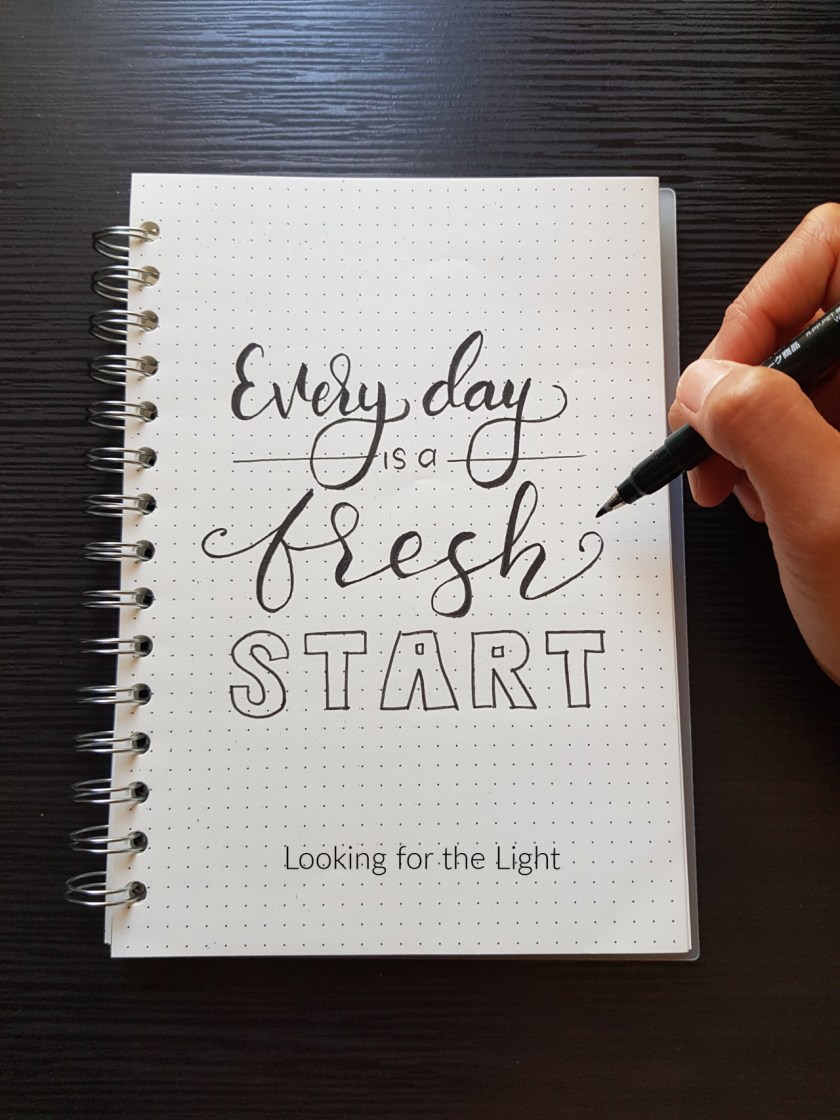 Every day
is a
fresh
START
Looking for the Light